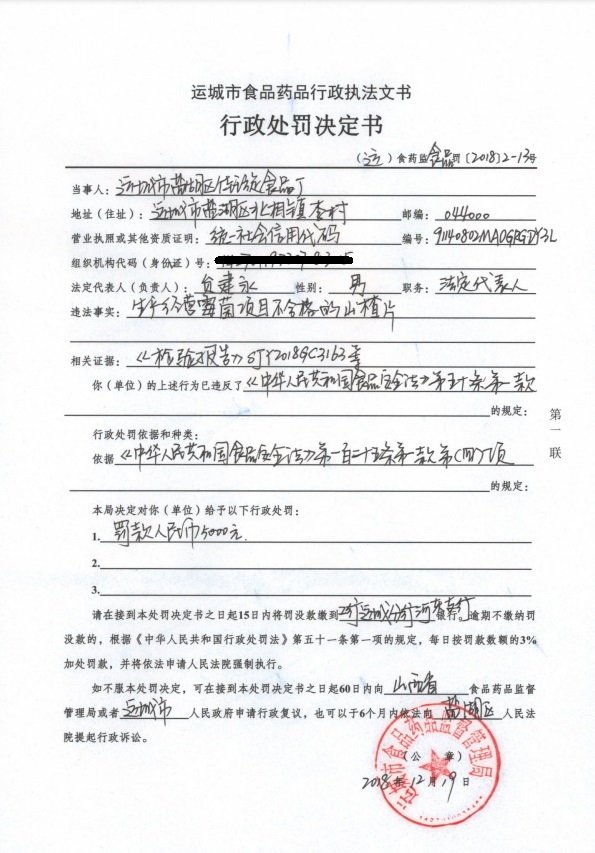 运城市食品药品行政执法文书
行政处罚决定书
（运）食药监食品罚〔2018〕2-13号
当事人：运城市盐湖区佳 食品厂
地址（住址）：运城市盐湖区北相镇 村 邮编：044000
营业执照或其他资质证明：统一社会信用代码 编号：91140802MA0GRGDY3L
组织机构代码（身份证）号：
法定代表人（负责人）：贠建永 性别：男 职务：法定代表人
违法事实：生产经营霉菌项目不合格的山楂片
相关证据：《检验报告》 2018GC3163等
你（单位）的上述行为已违反了《中华人民共和国食品安全法》第五十条第一款
的规定；
行政处罚依据和种类：
依据《中华人民共和国食品安全法》第一百二十五条第一款第（四）项
的规定；
本局决定对你（单位）给予以下行政处罚：
1.罚款人民币5000元.
2.
3.
请在接到本处罚决定书之日起15日内将罚款缴到工行运城分行河东支行银行。逾期不缴纳罚
没款的，根据《中华人民共和国行政处罚法》第五十一条第一项的规定，每日按罚款数额的3%
加处罚款，并将依法申请人民法院强制执行。
如不服本处罚决定，可在接到本处罚决定书之日起60日内向山西省食品药品监督
管理局或者运城市人民政府申请行政复议，也可以于6个月内依法向盐湖区人民法
院提起行政诉讼。
（公 章）
2018年12月19日
运城市食品药品监督管理局
第一联